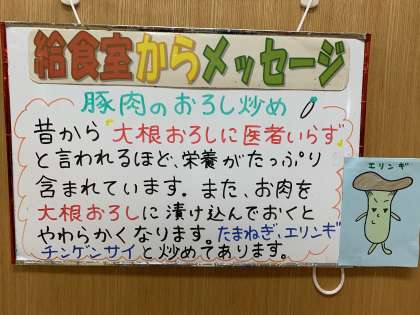 給食室からメッセージ
豚肉のおろし炒め
昔から"大根おろしに医者いらず"
と言われるほど、栄養がたっぷり
含まれています。また、お肉を
大根おろしに漬け込んでおくと
やわらかくなります。たまねぎ、エリンギ
チンゲンサイと炒めてあります。
エリンギ